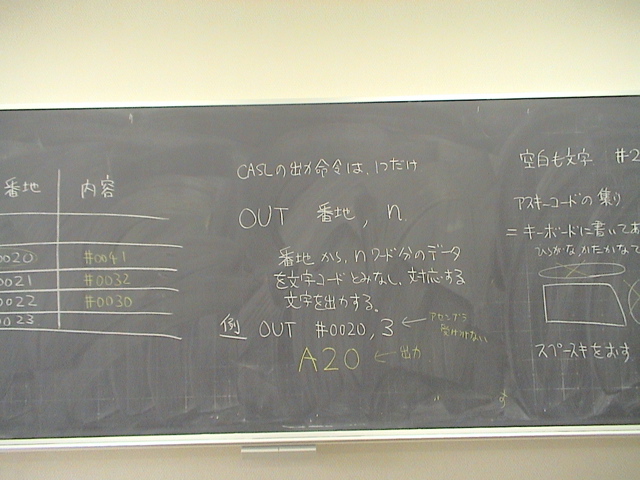 番地 内容
0020 #0041
0021 #0032
0022 #0030
0023
CASLの出力命令は、1つだけ
OUT 番地, n.
番地から、nワード分のデータ
を文字コードとみなし、対応する
文字を出力する。
例 OUT #0020, 3 ← アセンブラ
受けつけない
A20 ← 出力
空白も文字 #2
アスキーコードの集り
= キーボードに書いてあ
ひらがな かたかなて
スペースキをおす